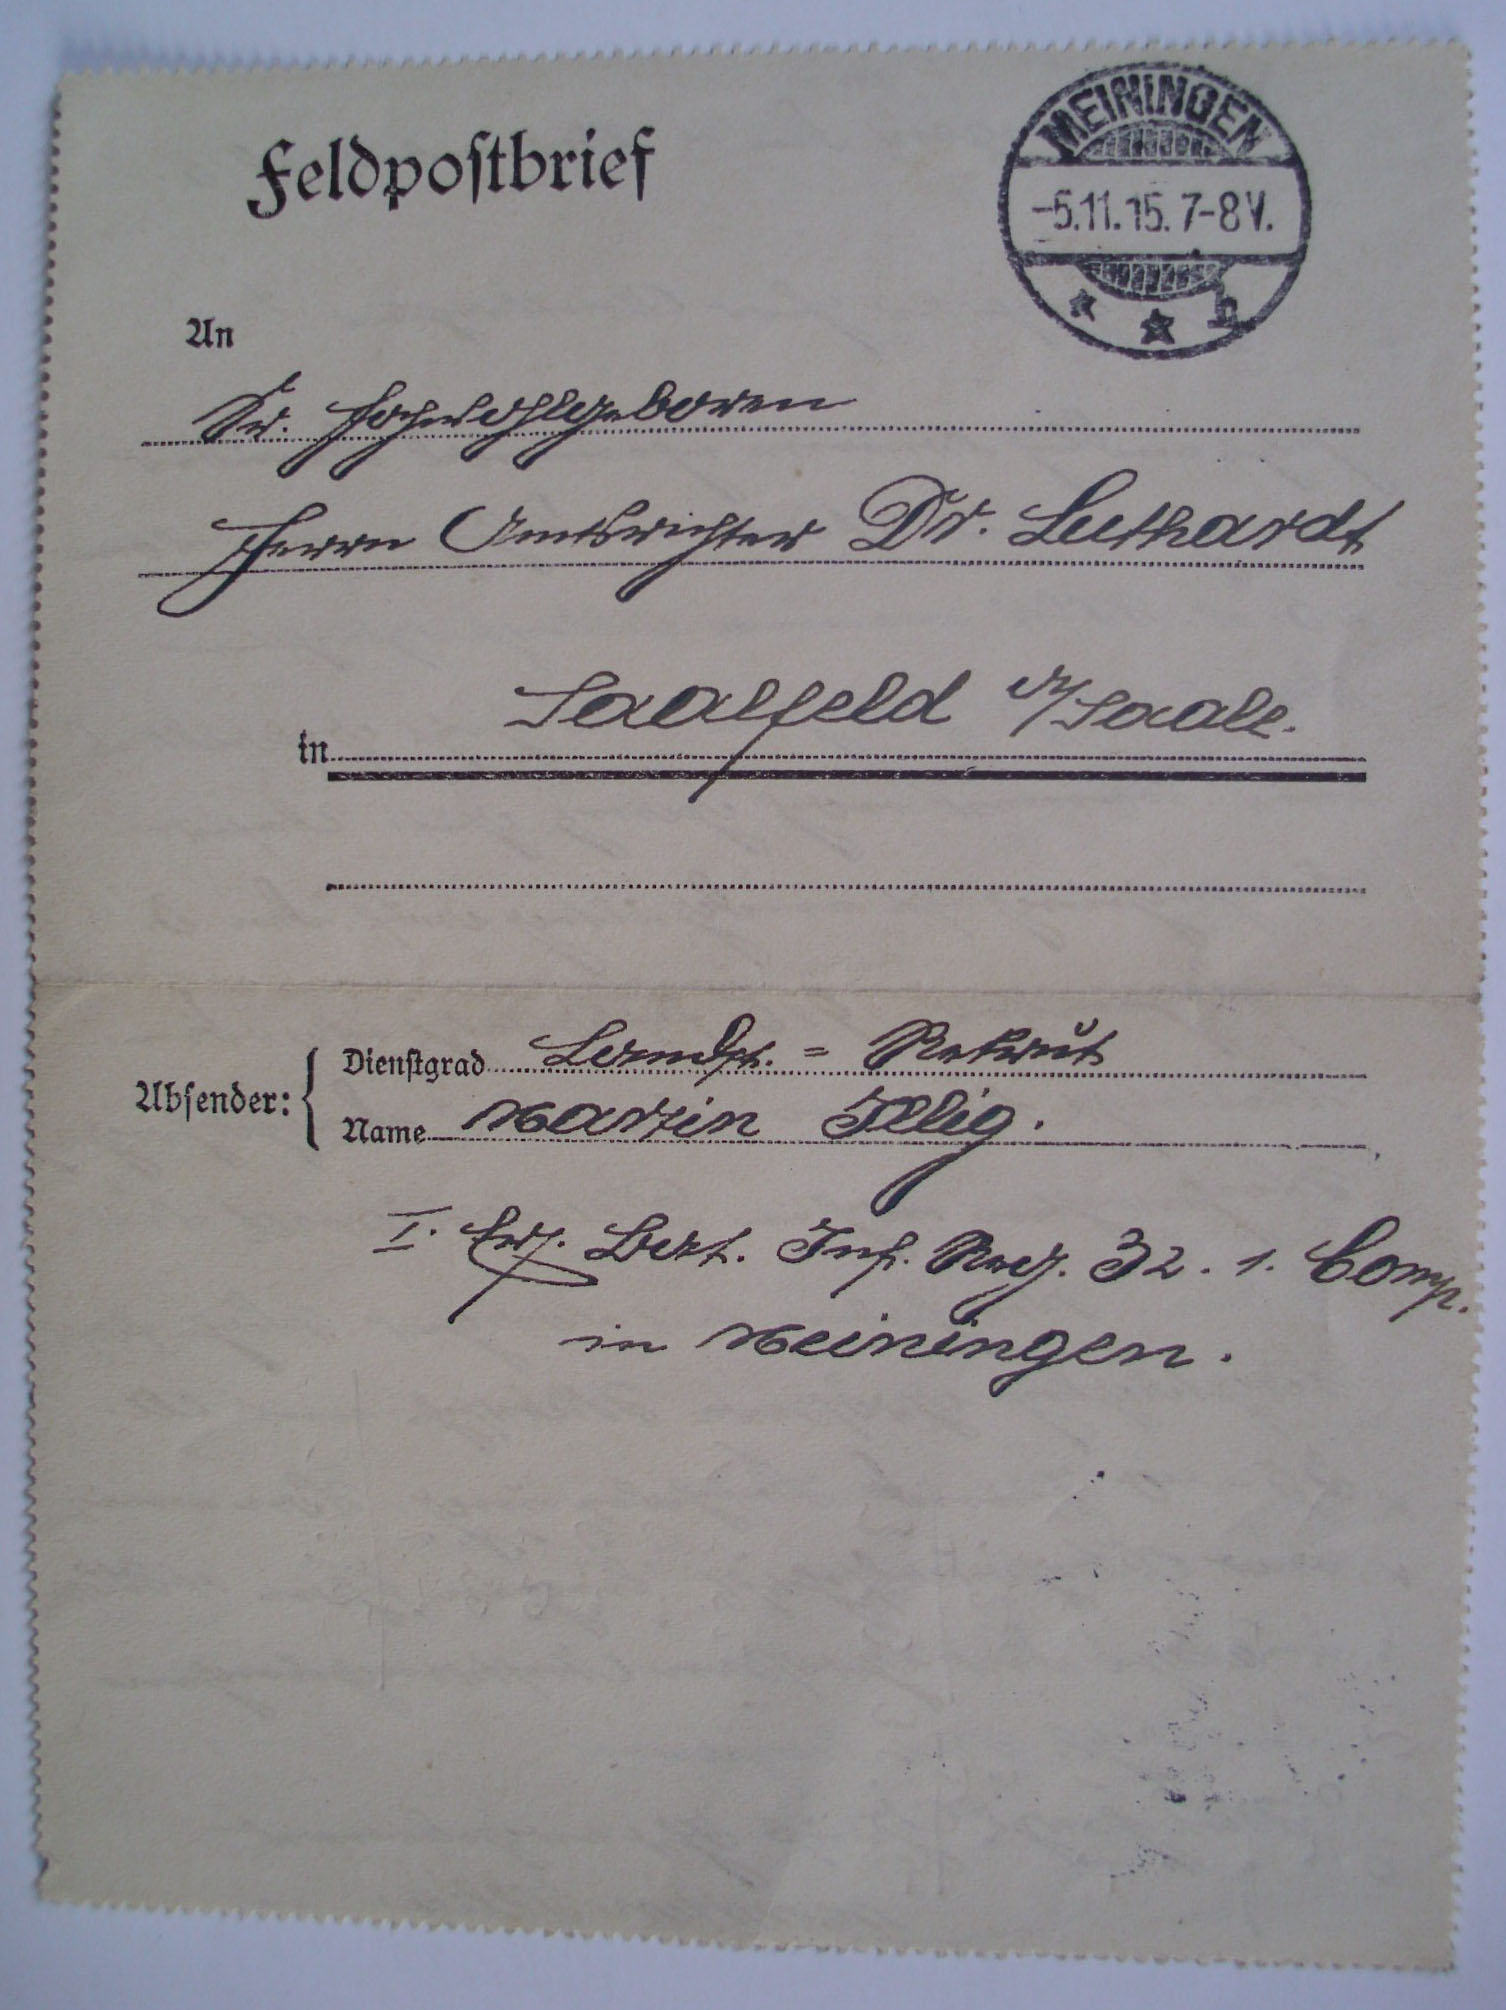 Feldpostbrief
MEININGEN
-5.11.15.7-8V.
An
Sr. Hochwohlgeboren
Herrn Amtsrichter Dr. Luthardt
in Saalfeld a/Saale.
Absender:
Dienstgrad Landst. = Rekrut
Name Martin Illig.
I. Ers. Batl. Inf. Reg. 32. 1. Comp.
in Meiningen.